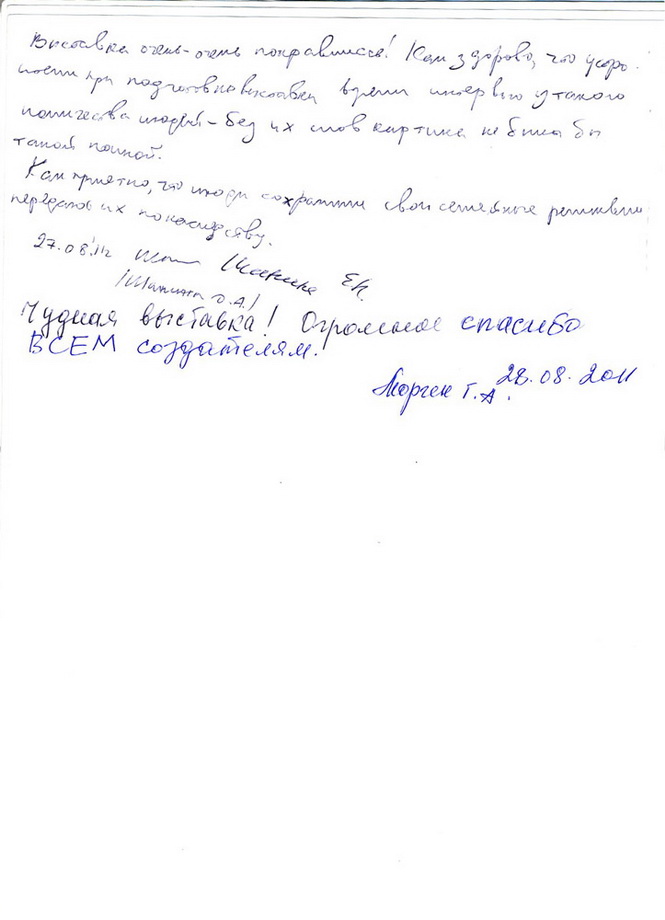 Выставка очень-очень понравилась! Как здорово, что
при подготовке выставки взяли интервью у такого
количества людей – без их слов картина не была бы
такой полной.
Как приятно, что люди сохранили свои семейные реликвии
передавая их по наследству.
27.08.11г Е.А.
Чудная выставка! Огромное спасибо
ВСЕМ создателям!
28.08.2011
Морген Г.А.